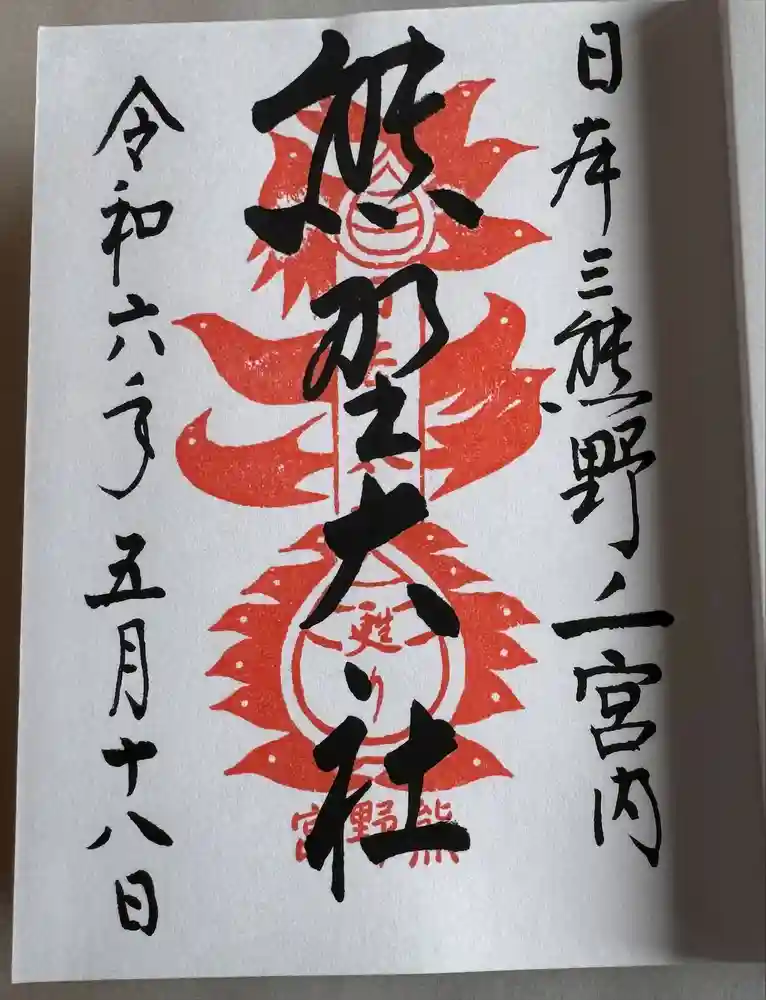 日本三熊野ノ一宮内
熊埜大社
甦り
熊野宮
令和六年五月十八日